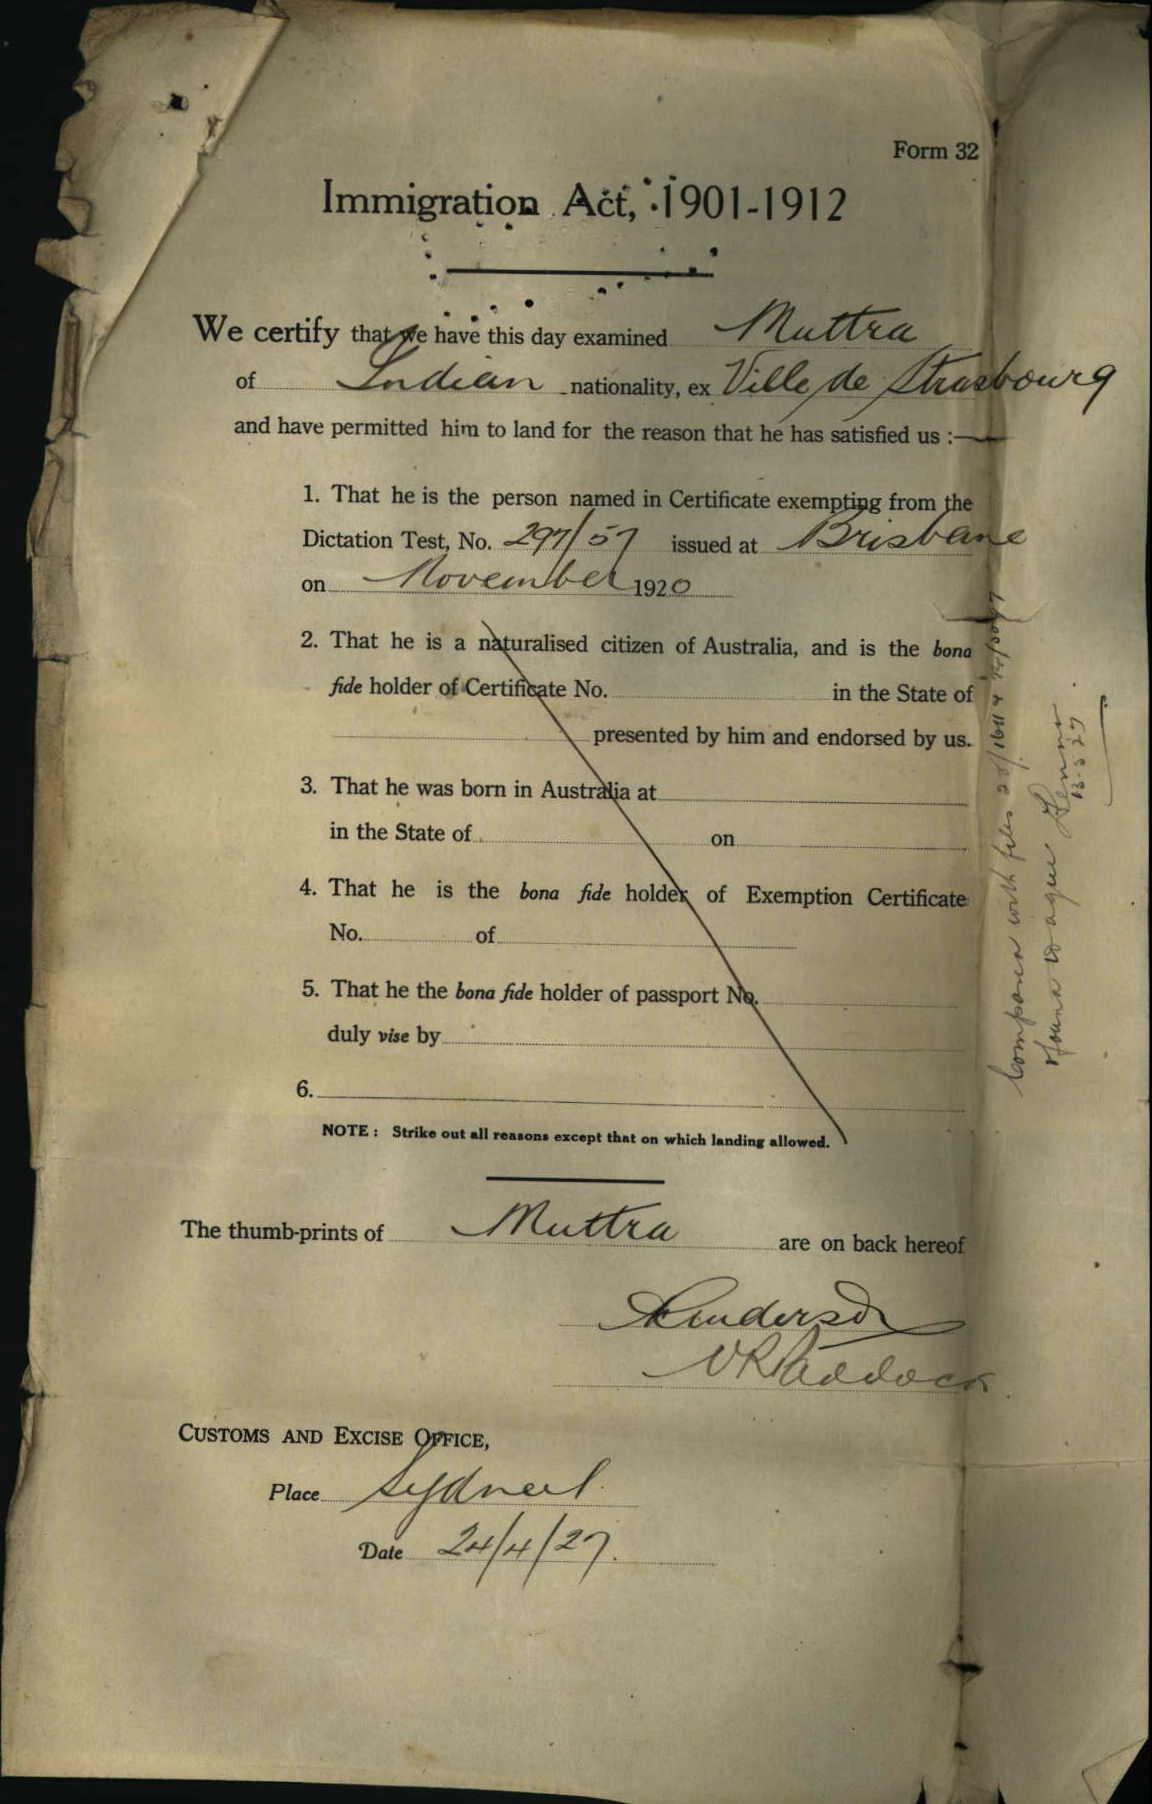 Form 32
Immigration Act, 1901-1912
We certify that we have this day examined Muttra
of Indian nationality, ex Ville de Strasbourg
and have permitted him to land for the reason that he has satisfied us :—
1. That he is the person named in Certificate exempting from the
Dictation Test, No. 297/57 issued at Brisbane
on November 1920
2. That he is a naturalised citizen of Australia, and is the bona
fide holder of Certificate No. in the State of
presented by him and endorsed by us.
3. That he was born in Australia at
in the State of on
4. That he is the bona fide holder of Exemption Certificate
No. of
5. That he the bona fide holder of passport No.
duly vise by
6.
NOTE : Strike out all reasons except that on which landing allowed.
The thumb-prints of Muttra are on back hereof
Henderson
Paddock
CUSTOMS AND EXCISE OFFICE,
Place Sydney
Date 24/4/27.
Compared with files
found to agree